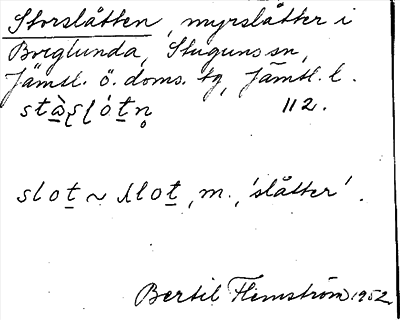 Storslåtten, myrslåtter i
Borglunda, Stuguns sn,
Jämtl. ö. doms. tg, Jämtl. l.
112.
slot ~ ʎlot, m., 'slåtter'.
Bertil Flemström 1952